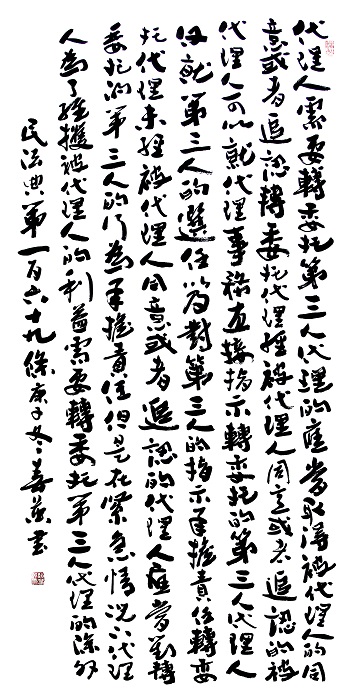 代理人需要轉委托第三人代理的應當取得被代理人的同
意或者追認轉委托代理經被代理人同意或者追認的被
代理人可以就代理事務直接指示轉委托的第三人代理人
仅就第三人的選任以及對第三人的指示承擔責任轉委
托代理未經被代理人同意或者追認的代理人應當對轉
委托的第三人的行為承擔責任但是在緊急情況下代理
人為了維護被代理人的利益需要轉委托第三人代理的除外
民法典第一百六十九條庚子冬書